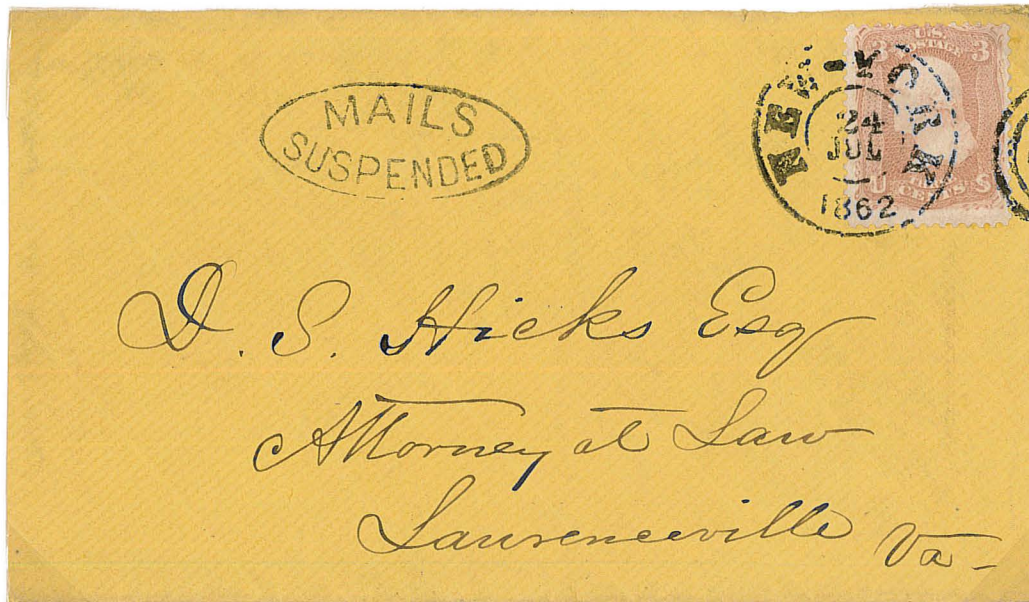 MAILS
SUSPENDED
NEW-YORK
24
JUL
1862
U.S.
POSTAGE
3 3
U S
CENTS
D. S. Hicks Esq
Attorney at Law
Lawrenceville Va-